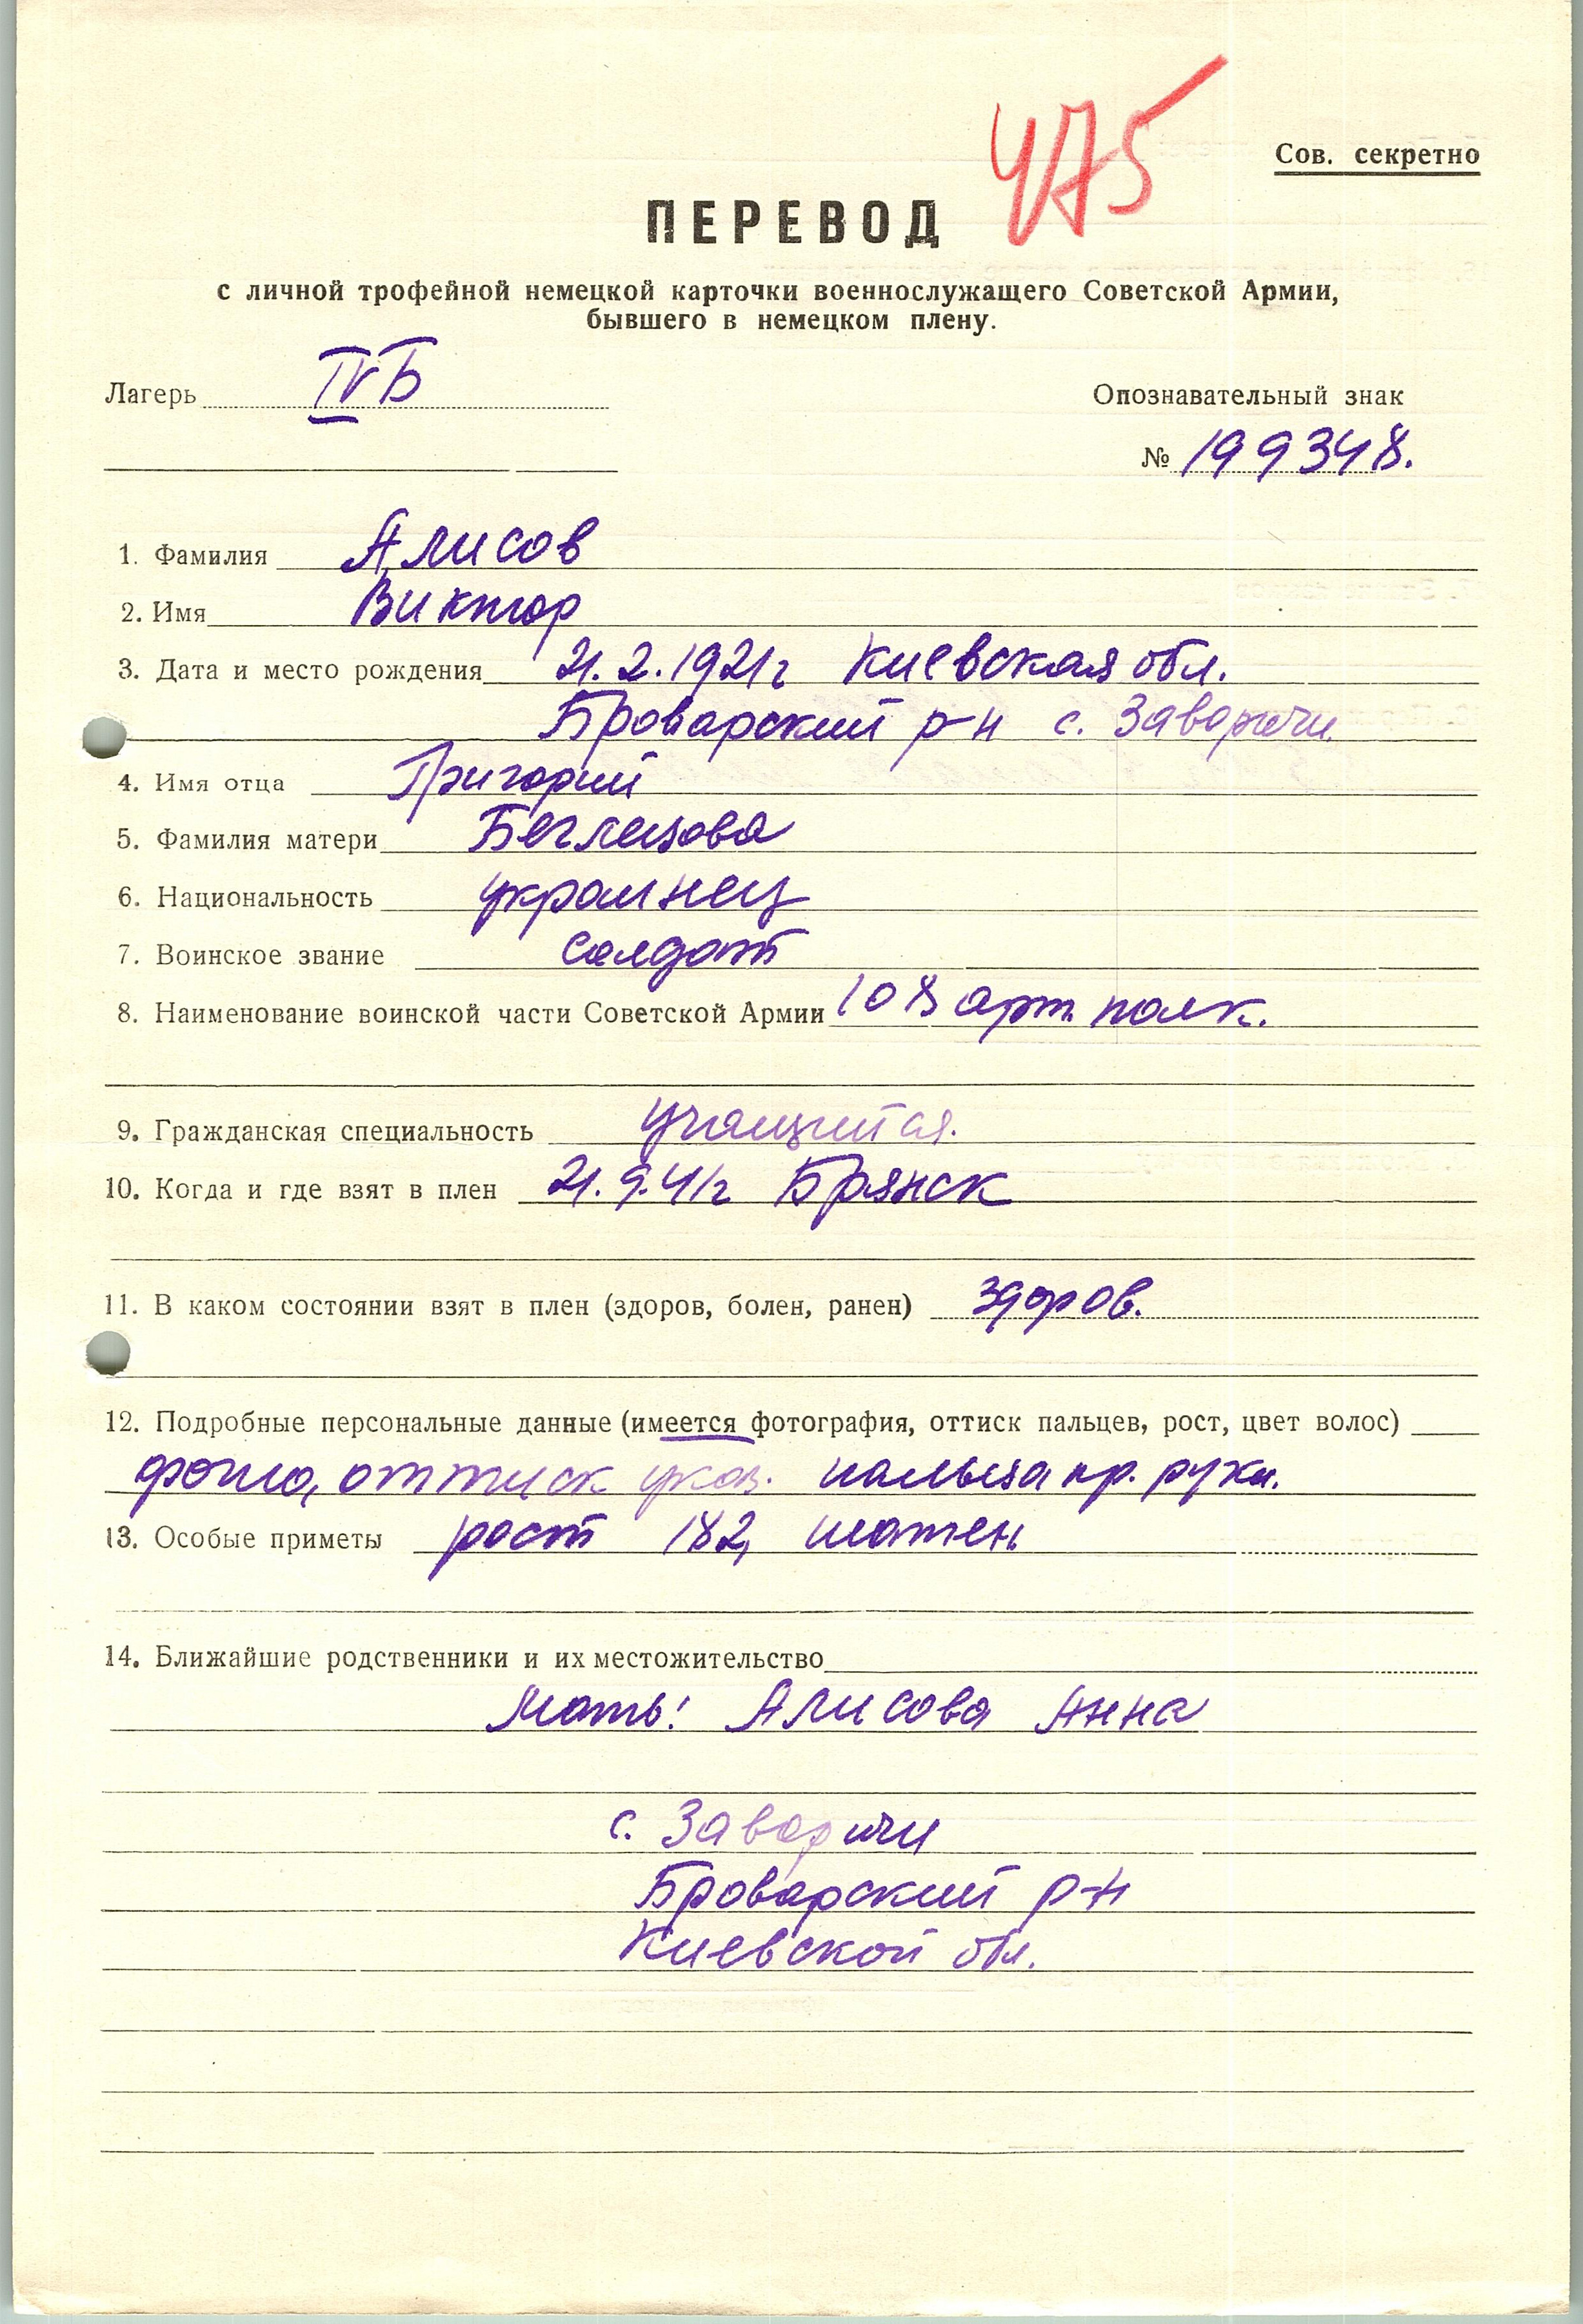 475
Сов. секретно
ПЕРЕВОД
с личной трофейной немецкой карточки военнослужащего Советской Армии,
бывшего в немецком плену.
Лагерь IVБ
Опознавательный знак
№ 199348.
1. Фамилия Алисов
2. Имя Виктор
3. Дата и место рождения 21.2.1921г Киевская обл.
Броварский р-н с. Заворичи.
4. Имя отца Григорий
5. Фамилия матери
6. Национальность украинец
7. Воинское звание солдат
8. Наименование воинской части Советской Армии 108 арт. полк.
9. Гражданская специальность учащийся.
10. Когда и где взят в плен 21.9.41г Брянск
11. В каком состоянии взят в плен (здоров, болен, ранен) здоров.
12. Подробные персональные данные (имеется фотография, оттиск пальцев, рост, цвет волос)
фото, оттиск указ. пальца пр. руки.
13. Особые приметы рост 182, шатен
14. Ближайшие родственники и их местожительство
Мать: Алисова Анна
с. Заворичи
Броварский р-н
Киевской обл.